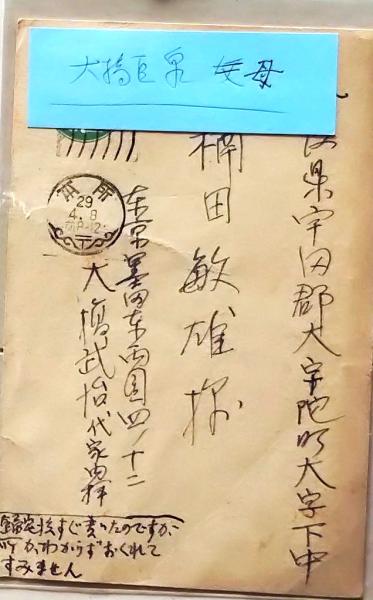 大橋巨泉 父母
県宇田郡大宇陀町大字下中
楠田敏雄様
東京墨田東両国四ノ十二
大橋武治代家内拝
本所
29
4. 8
後すぐ書いたのですが、
所がわからずおくれて
すみません